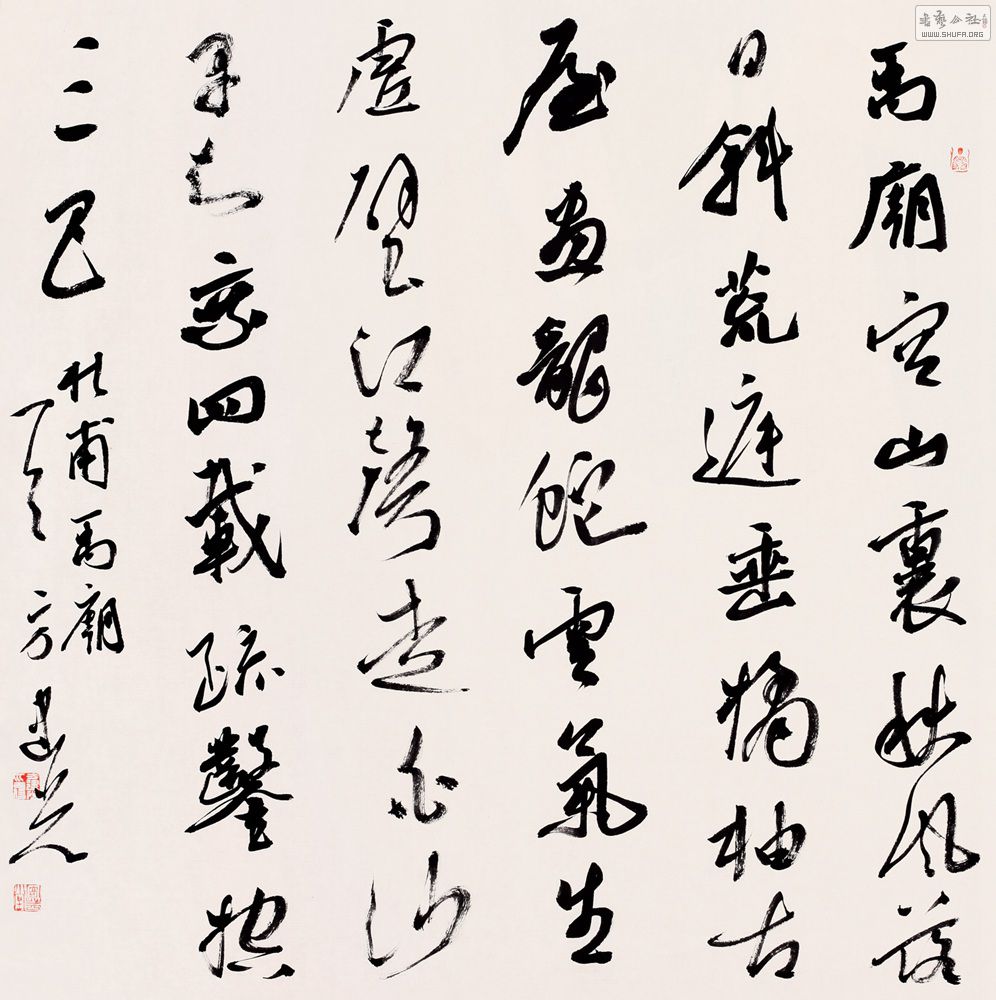 書藝公社
WWW.SHUFA.ORG
禹廟空山裏秋風落
日斜荒庭垂橘柚古
屋畫龍蛇雲氣生
虛壁江聲走白沙
早知乘四載疏鑿控
三巴 杜甫禹廟
丁亥 方建光